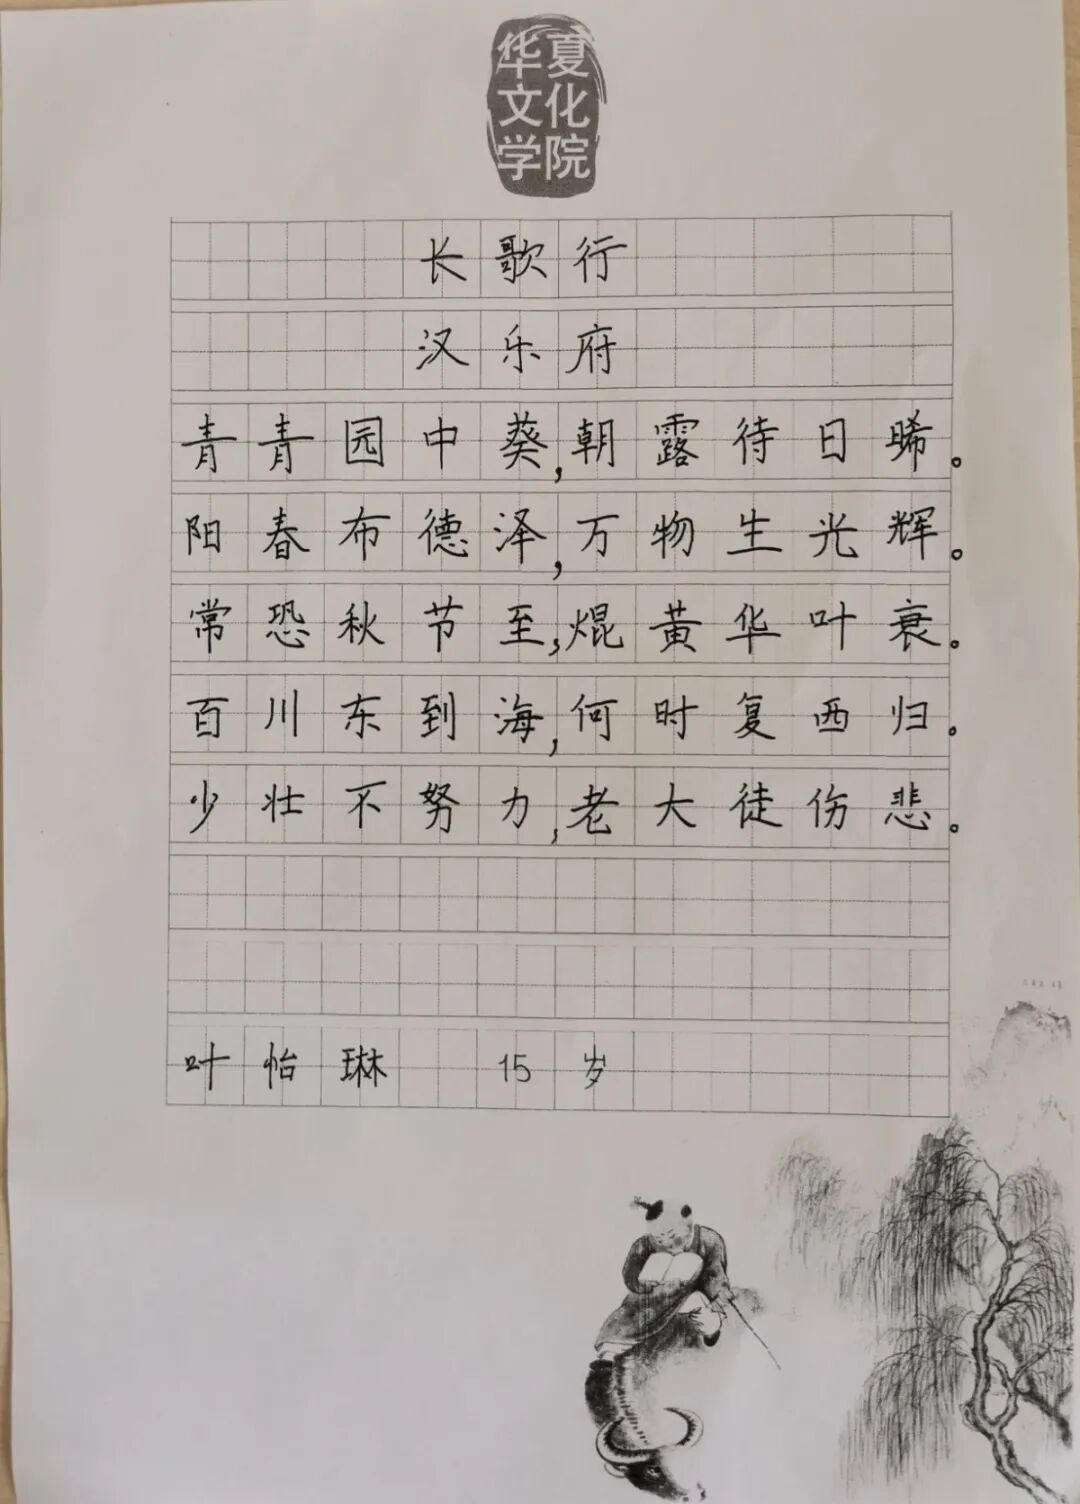 华夏
文化
学院
长歌行
汉乐府
青青园中葵,朝露待日晞。
阳春布德泽,万物生光辉。
常恐秋节至,焜黄华叶衰。
百川东到海,何时复西归。
少壮不努力,老大徒伤悲。
叶怡琳 15岁